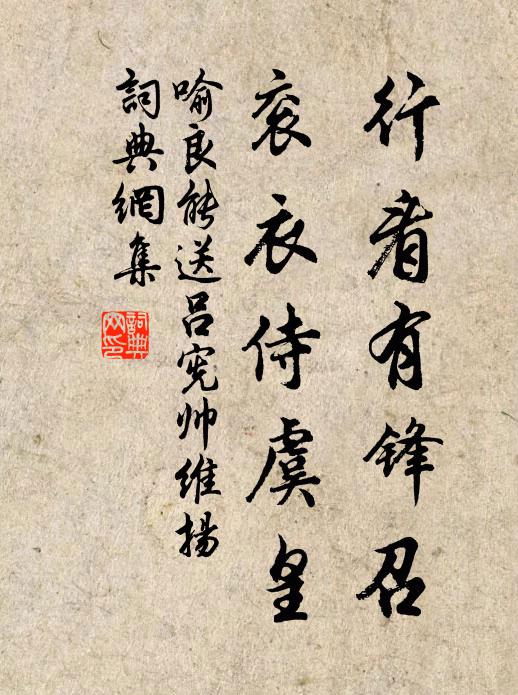 行看有锋召
衮衣侍虞皇
喻良能送吕宪帅维揚
詞典網集
詞典網印